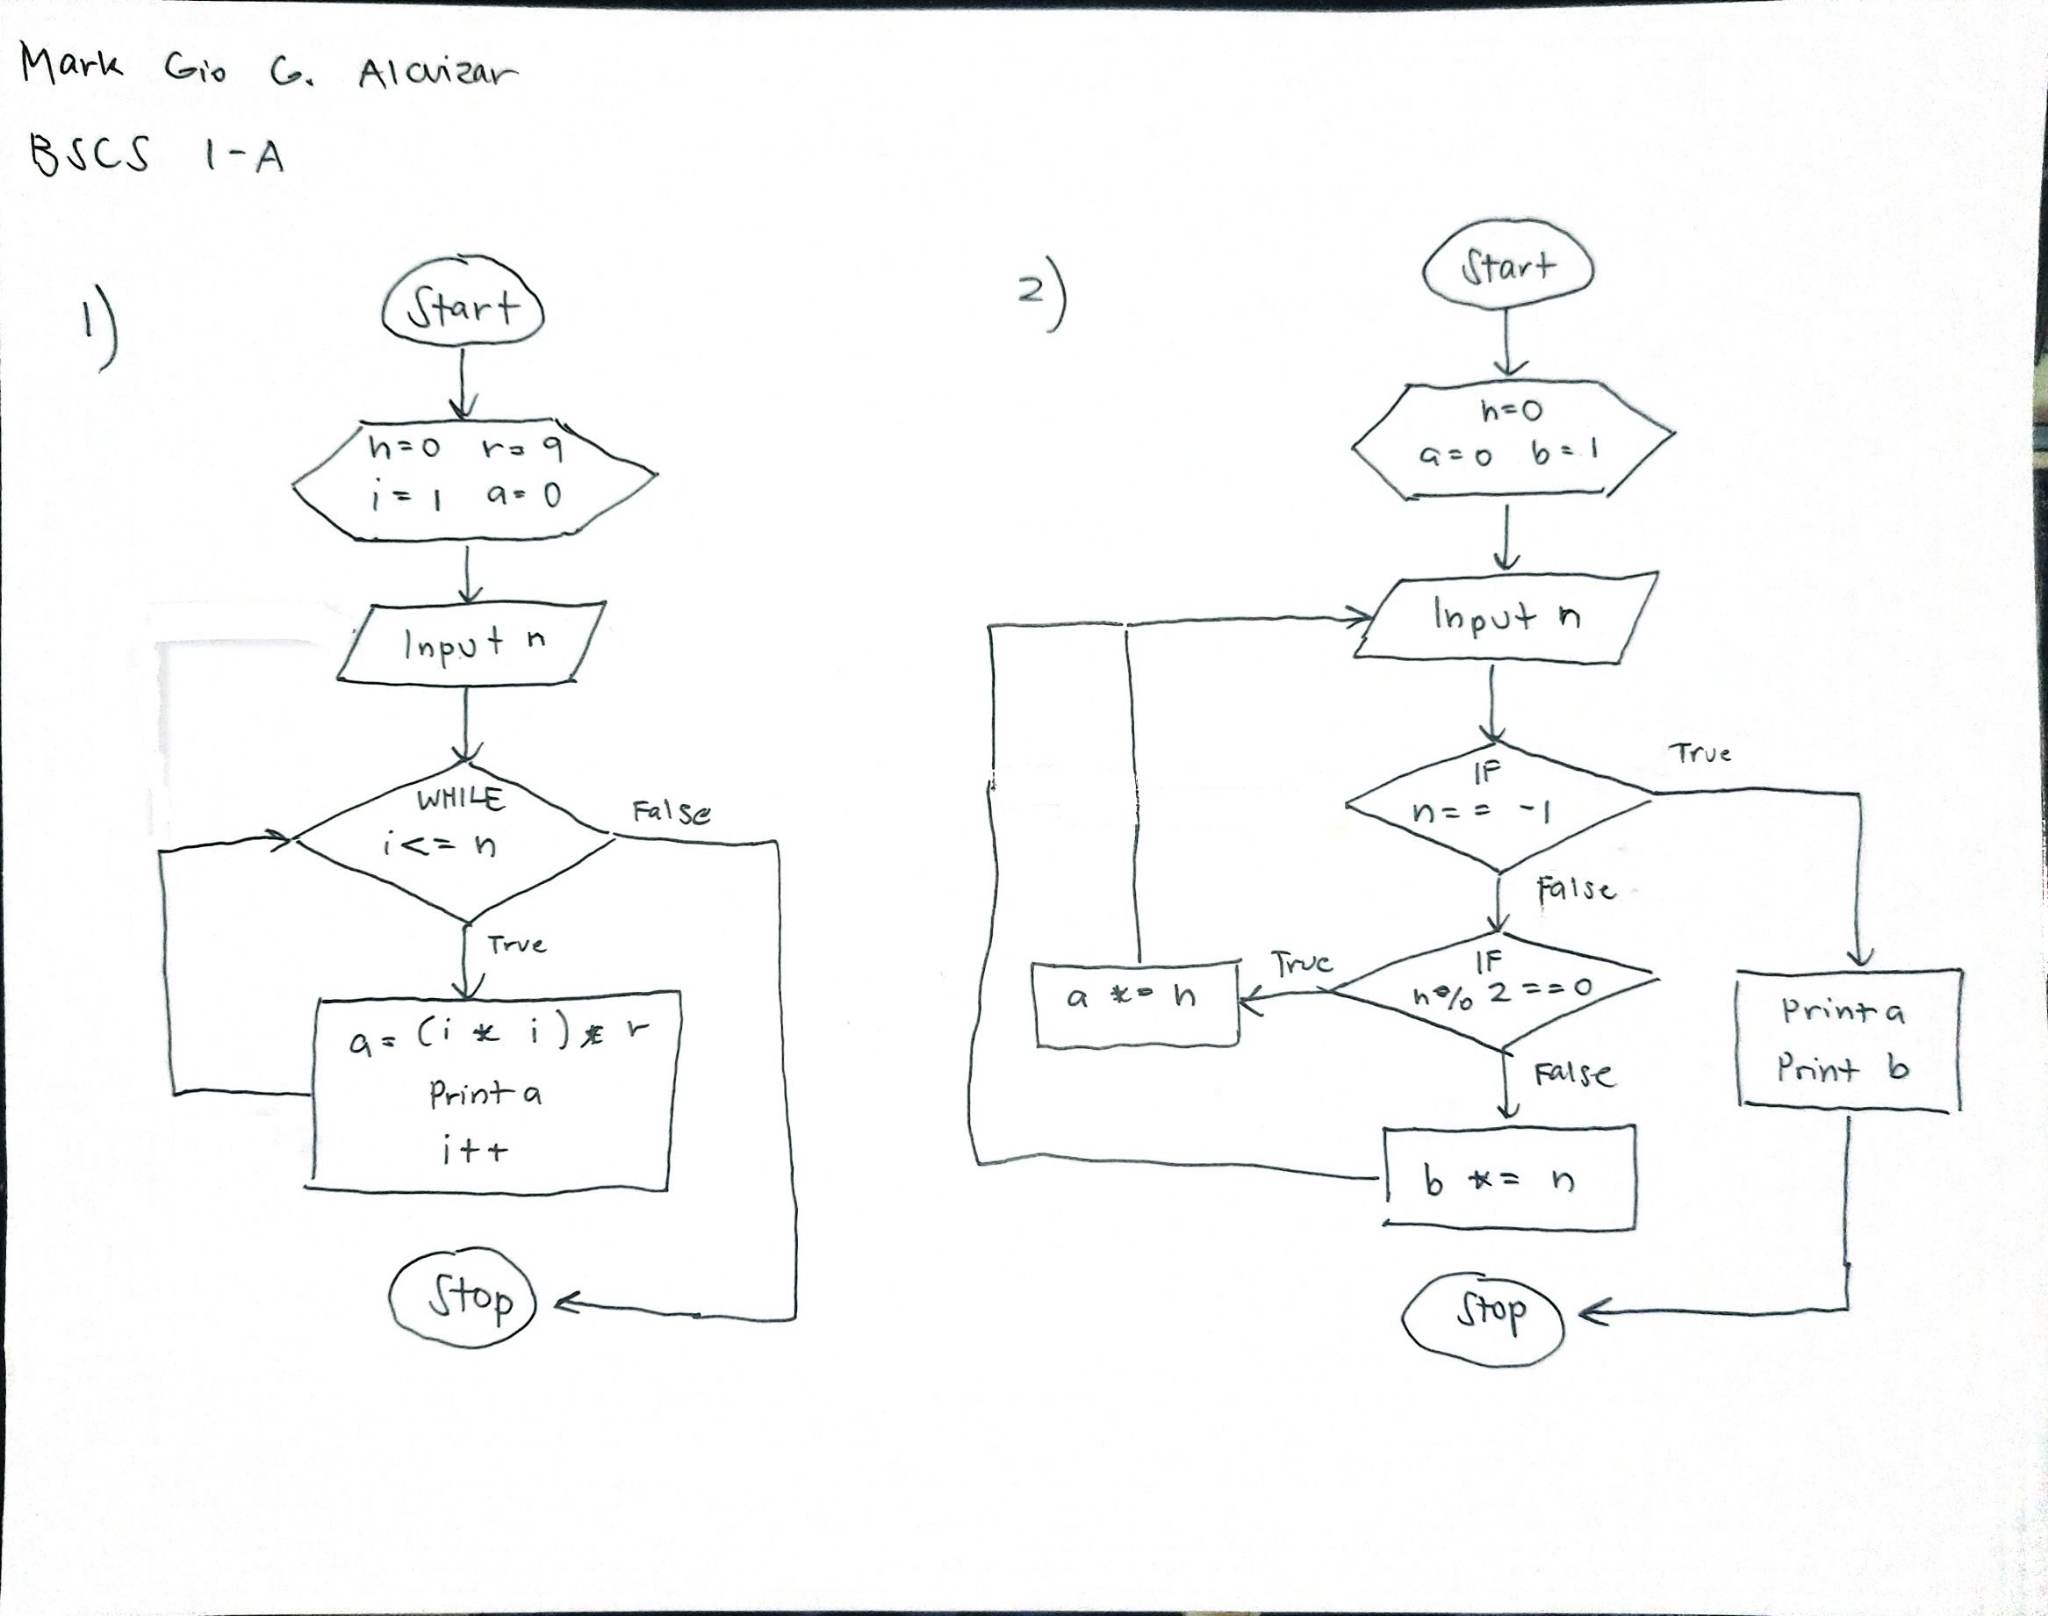 Mark Gio G. Alcvizar
BSCS 1-A
1)
Start
n=0 r=9
i=1 a=0
Input n
WHILE
i<=n
False
True
a=(i * i)* r
Print a
i++
Stop
2)
Start
n=0
a=0 b=1
Input n
IF
n== -1
True
False
IF
n%2==0
True
a *= n
False
b *= n
Print a
Print b
Stop